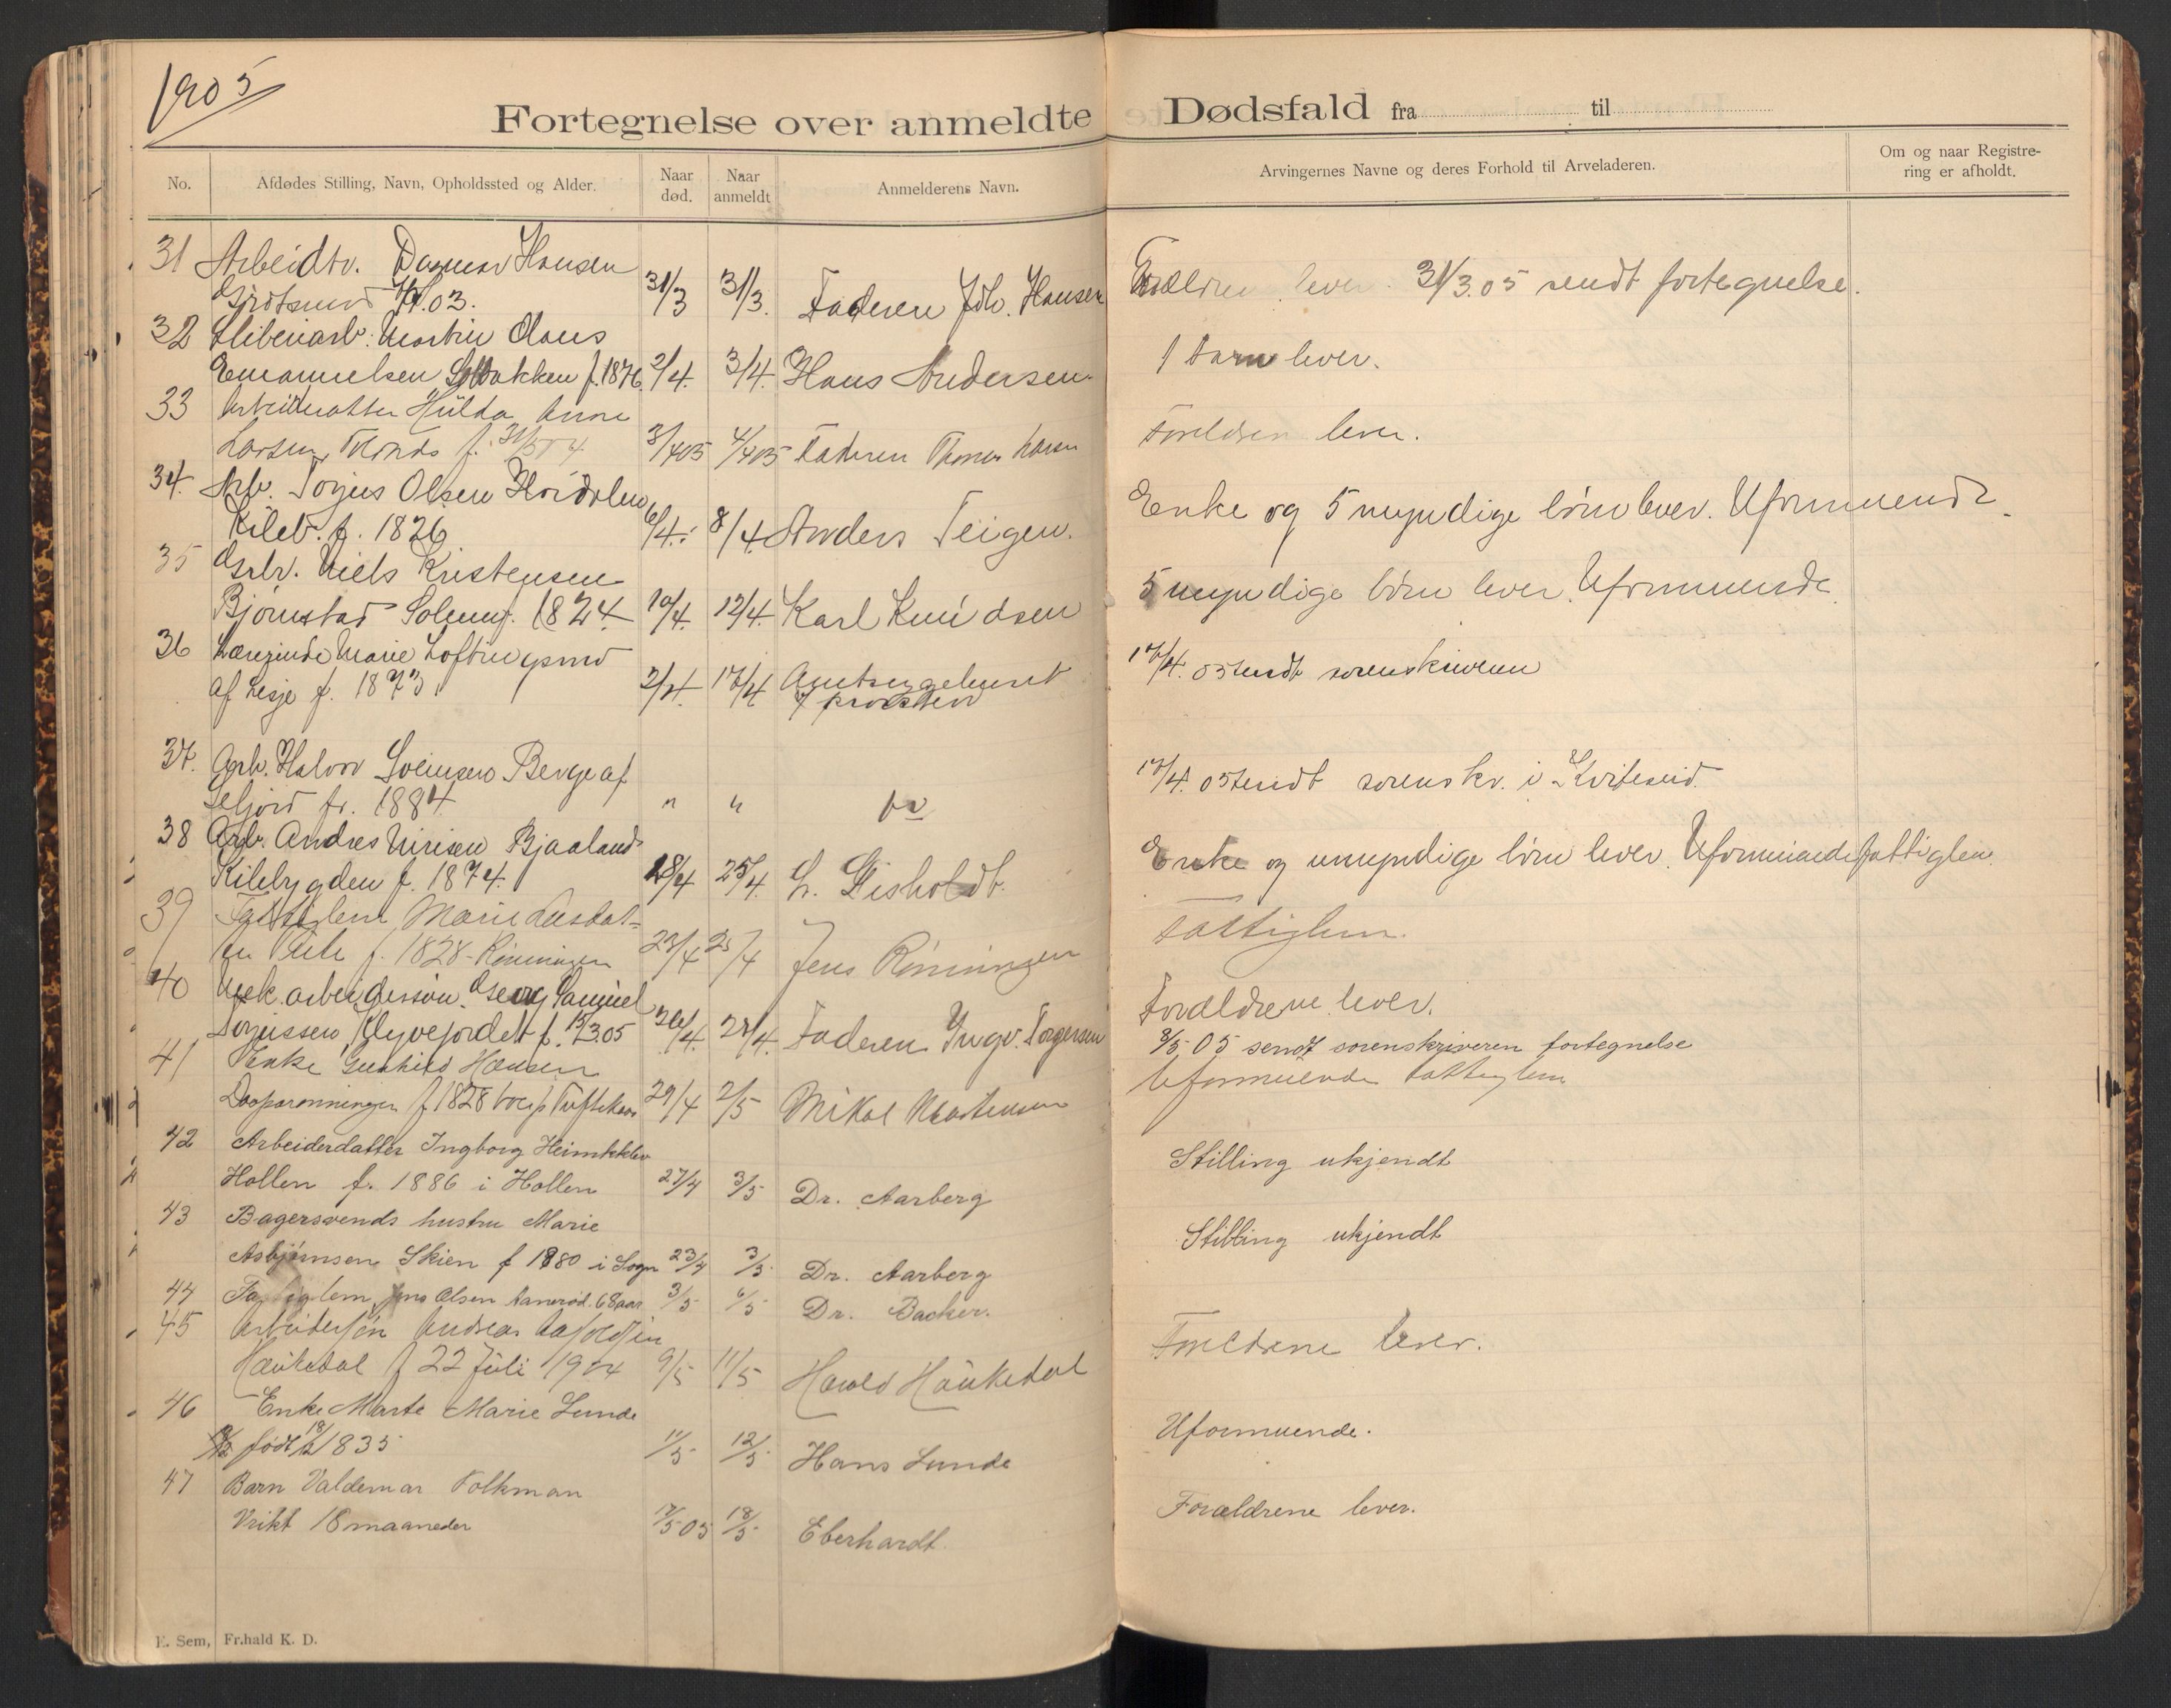 1905
Fortegnelse over anmeldte Dødsfald fra til
No. Afdødes Stilling, Navn, Opholdssted og Alder. Naar død. Naar anmeldt Anmelderens Navn. Arvingernes Navne og deres Forhold til Arveladeren. Om og naar Registrering er afholdt.
31 Arbeidtr. Dagmar Hansen
03. 31/3 31/3. Faderen Joh. Hansen Forældren lever. 31/3.05 sendt fortegnelse.
32 Sliberiarb. Martin Claus
Emanuelsen f. 1876. 2/4. 3/4. Hans Andersen. 1 barn lever.
33 Arbeiderdatter Hilda Anne
Larsen, f. 31/5 04 3/4 05 4/4 05 Faderen Thomas Larsen Foreldren lever.
34. Arb. Torjus Olsen
Kileb. f. 1826 6/4. 8/4 Anders Teigen. Enke og 5 myndige børn lever. Uformuende.
35 Niels Kristensen
Bjørnstad Solum f. 1824. 10/4. 12/4. Karl Knudsen 5 myndige børn lever. Uformuende.
36 Lærerinde Marie
af Lesje f. 1873 2/4. 17/4 Amtsygehuset 17/4. 05 sendt sorenskriveren
37. Arb. Halvor Sveinsen Berge af
Seljord f. 1884. " " 17/4. 05 sendt sorenskr. i Kviteseid.
38 Arb. Andres Nirisen Bjaaland
Kilebygden f. 1874. 18/4 25/4. L. Gisholdt. Enke og umyndige børn lever. Uformuende fattiglem.
39 Fattiglem Marie Larsdat-
ter f. 1828 - Rønningen 23/4 25/4 Jens Rønningen Fattiglem.
40 Mek. arbeidersøn Georg Samuel
Torjussen, Klyvejordet f. 15/3.05 26/4. 28/4. Faderen Ingv. Torgersen Forældrene lever.
41 Enke Gunhild Hansen 8/5 05 sendt sorenskriveren fortegnelse
f 1828 29/4 2/5 Mikal Mortensen Uformuende fattiglem
42 Arbeiderdatter Ingborg
Hollen f. 1886 i Hollen 27/4 3/5 Dr. Aarberg Stilling ukjendt
43 Bagersvends hustru Marie
Asbjørnsen, Skien f 1880 i Sogn 23/4 3/5 Dr. Aarberg Stilling ukjendt
44 Fattiglem Jens Olsen 68 aar 3/5 6/5 Dr. Backer.
45 Arbeidersøn Andreas
Haukedal f 22 Juli 1904 9/5 11/5 Harald Haukedal Foreldrene lever.
46 Enke Marte Marie Lunde
født 18/2 1835 11/5 12/5 Hans Lunde Uformuende.
47 Barn Valdemar Folkman
Vrikt 18 maaneder 17/5 05 18/5 Eberhardt Forældrene lever.
E. Sem, Fr.hald K. D.